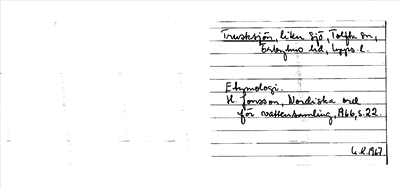 Trusksjön, liten sjö, Tolfta sn,
Örbyhus hd, Upps. l.
Etymologi.
H. Jonsson, Nordiska ord
för vattensamling, 1966, s. 22.
1967